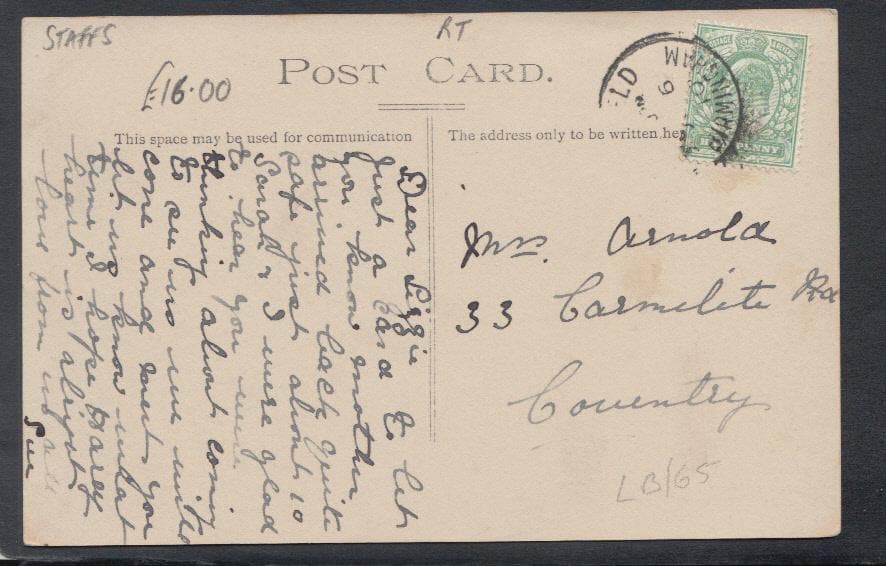 STAFFS
RT
£16.00
POST CARD.
This space may be used for communication
The address only to be written here
BIRMINGHAM
Dear Lizzie
Just a Card to let
you know mother
arrived back quite
safe just about 10
Sarah & I were glad
to hear you were
thinking about coming
to see us we will
come and meet you
let us know what
time I hope Harry
heart is alright
love from us all
Sue
Mrs. Arnold
33 Carmelite Rd
Coventry
LB/65